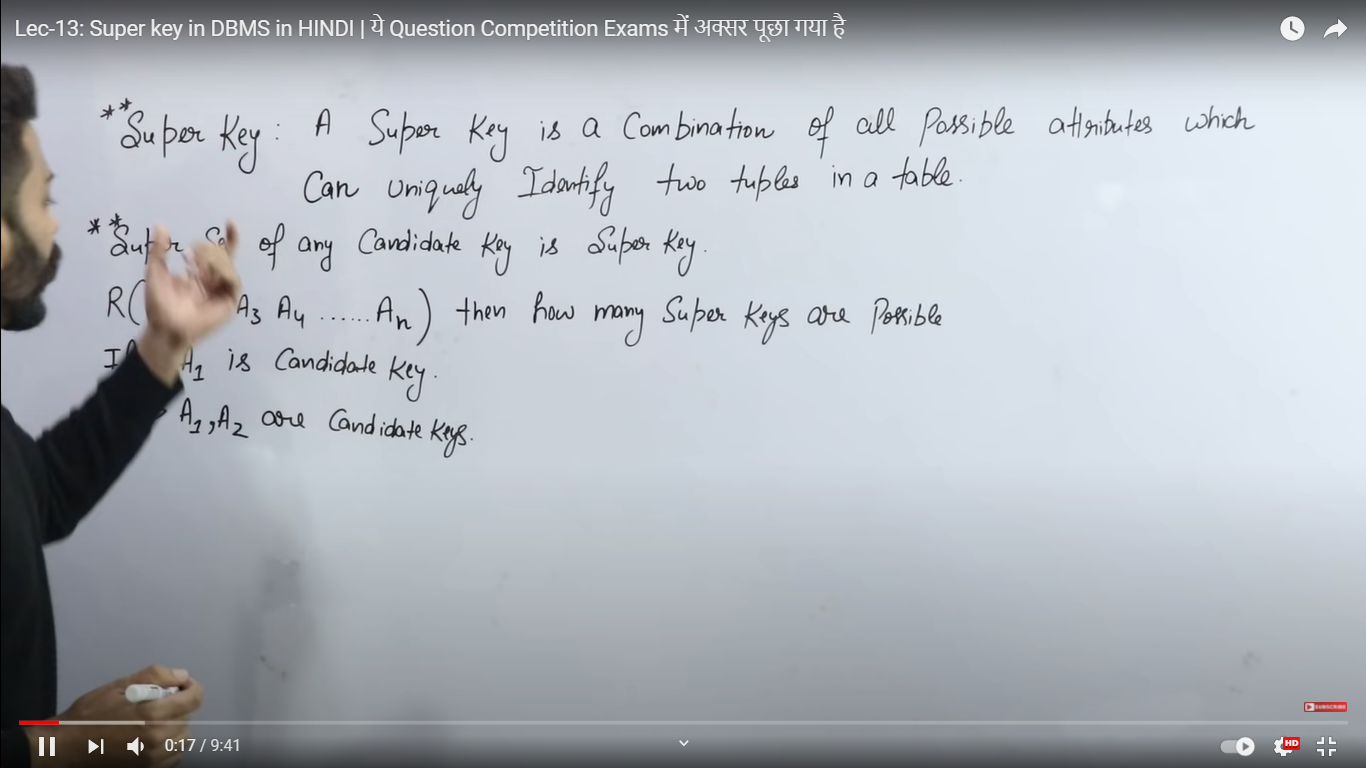 Lec-13: Super key in DBMS in HINDI | ये Question Competition Exams में अक्सर पूछा गया है
**Super Key: A Super Key is a Combination of all Possible attributes which
Can uniquely Identify two tuples in a table.
**Super of any Candidate Key is Super Key.
R( A3 A4 ...... An) then how many Super Keys are Possible
A1 is Candidate Key.
A1, A2 are Candidate Keys.
SUBSCRIBE
0:17 / 9:41
HD